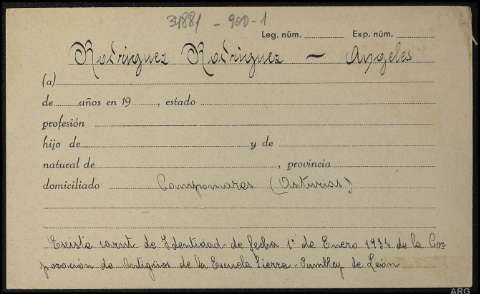 31881 - 900-1
Leg. núm. Exp. núm.
Rodriguez Rodriguez - Angeles
(a)
de años en 19 , estado
profesión
hijo de y de
natural de , provincia
domiciliado Campomanes (Asturias)
Existe carnt. de Identidad de fecha 1º de Enero 1934 de la Cor
poración de Antiguos de la Escuela Sierra-Pambley de León
ARG